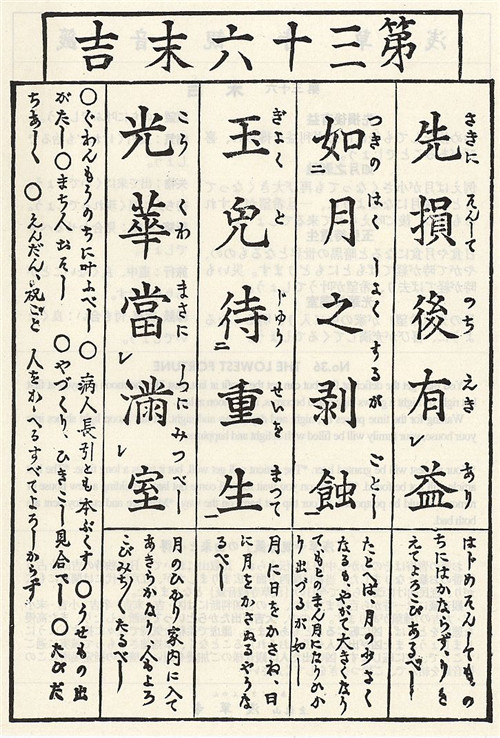 第三十六末吉
先損後有益
さきに そんして のち えき あり
はじめそんしてもの
ちにはかならずりを
えてよろこびあるべし
如月之剥蝕
つきの はく しよくするが ごとし
たとへば、月のちいさく
なるも、やがて大きくなり
てもとのまん月になりひか
り出づるが如し
玉兎待重生
ぎよく と ぢゆうせいを まつて
月に日をかさね、日
に月をかさぬるやうな
るべし
光華當滿室
こうくわ まさに しつにみつべし
月のひかり家内に入て
あきらかなり、人もよろ
こびみち〱たるべし
○ぐわんもうのちに叶ふべし ○病人長引とも本ぷくす ○うせもの出
がたし ○まち人出そし ○やづくり、ひきこし見合べし ○たびだ
ちあしく ○えんだん、祝ごと 人をかゝへるすべてよろしからず